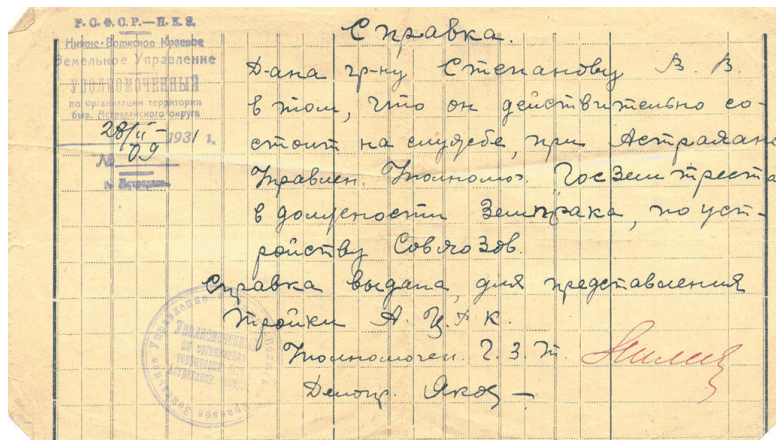 Р.С.Ф.С.Р.—Н.К.З.
Нижне-Волжское Краевое
Земельное Управление
УПОЛНОМОЧЕННЫЙ
по организации территории
быв. Астраханского округа
28/II 1931 г.
№ 09
г. Астрахань.
Справка.
Дана гр-ну Степанову В. В.
в том, что он действительно со-
стоит на службе, при Астрахан
Управлен. Уполномоч. Госземтреста
в должности Земпрака, по уст-
ройству Совхозов.
Справка выдана, для представления
Тройки А.
Уполномочен. Г. З. Т.
Делопр.